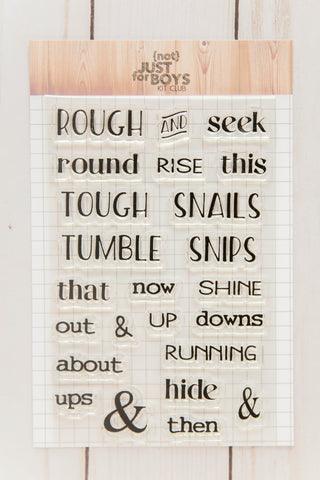 {not}
JUST
for BOYS
KIT CLUB
ROUGH AND seek
round RISE this
TOUGH SNAILS
TUMBLE SNIPS
that now SHINE
out & UP downs
about RUNNING
ups & hide &
then